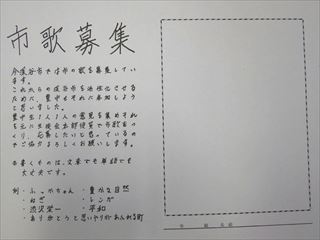 市歌募集
今深谷市では市の歌を募集してい
ます。
これからの深谷市を活性化させる
ために、豊中もそれに参加しよう
と思いました。
豊中生1人1人の意見を集めそれ
を元に生徒会本部役員で市歌をつ
くり、応募したいと思っているの
でご協力よろしくお願いします。
※書くものは、文章でも単語でも
大丈夫です。
例・ふっかちゃん ・豊かな自然
・ねぎ ・レンガ
・渋沢栄一 ・平和
・ありがとうと思いやりがあふれる町
年 組 名前